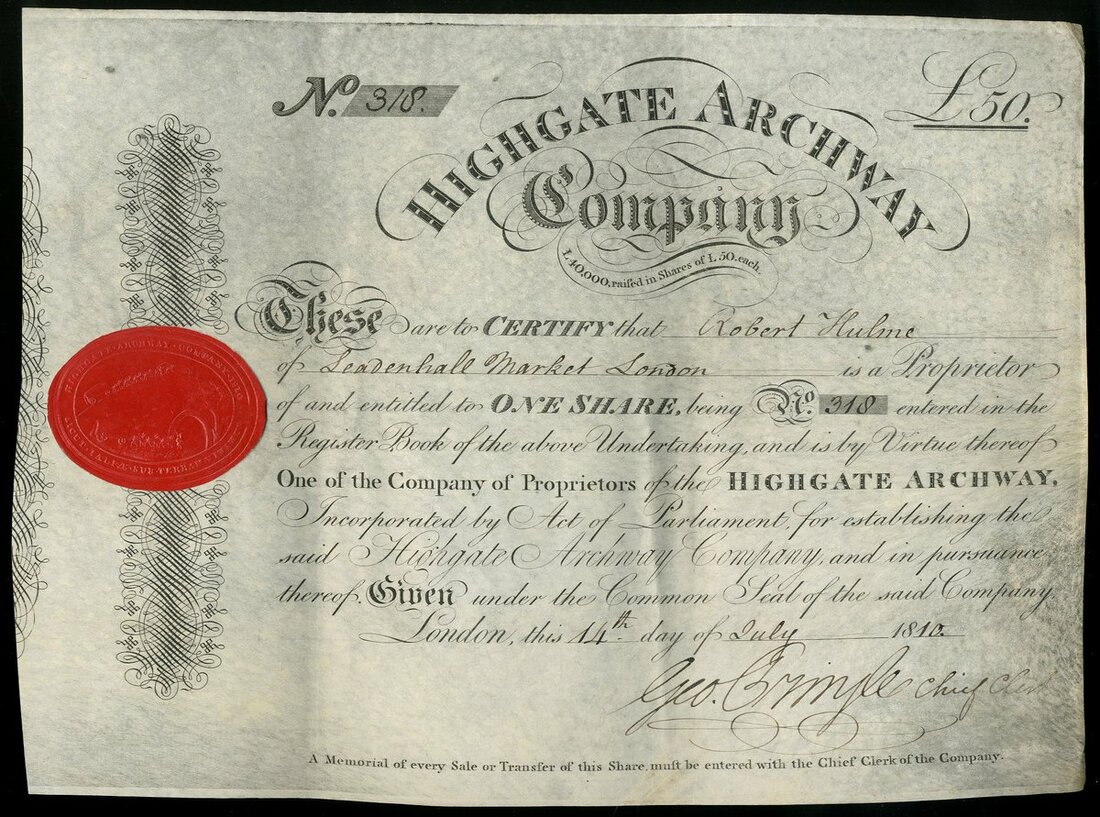 No. 318.
£50.
HIGHGATE ARCHWAY
Company
L 40,000, raiſed in Shares of L 50. each.
These are to CERTIFY that Robert Hulme
of Leadenhall Market London is a Proprietor
of and entitled to ONE SHARE, being No. 318 entered in the
Register Book of the above Undertaking, and is by Virtue thereof
One of the Company of Proprietors of the HIGHGATE ARCHWAY,
Incorporated by Act of Parliament, for establishing the
said Highgate Archway Company, and in pursuance
thereof. Given under the Common Seal of the said Company,
London, this 14th day of July 1810.
Geo. Pringle Chief Clerk
A Memorial of every Sale or Transfer of this Share, muſt be entered with the Chief Clerk of the Company.
HIGHGATE ARCHWAY COMPANY